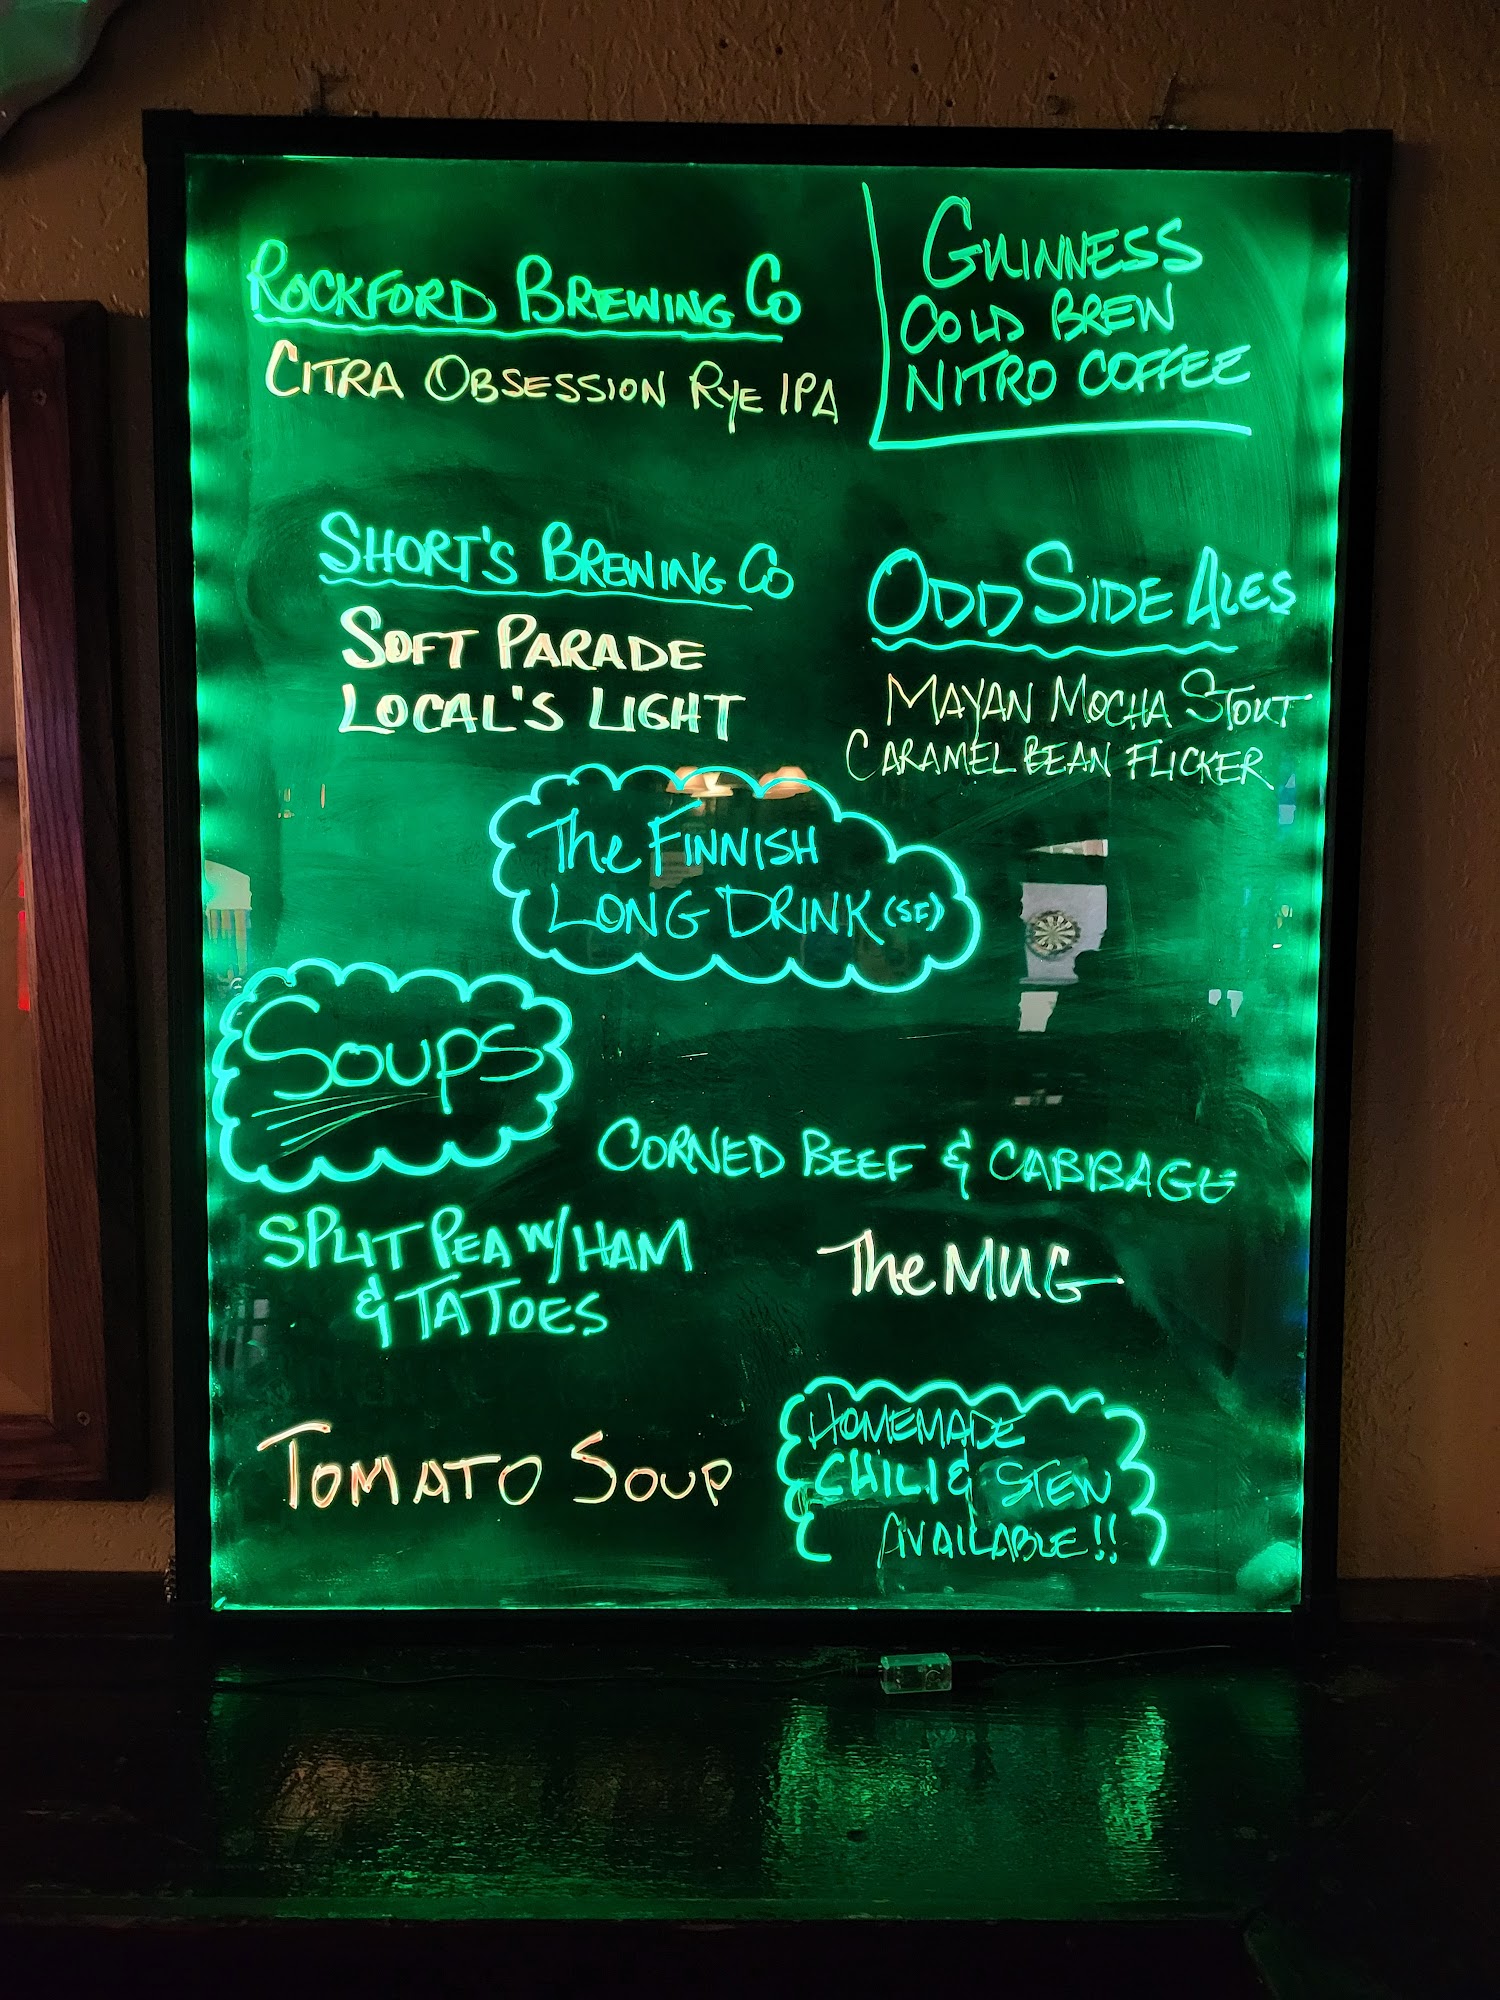 ROCKFORD BREWING CO
CITRA OBSESSION RYE IPA
GUINNESS
COLD BREW
NITRO COFFEE
SHORT'S BREWING CO
SOFT PARADE
LOCAL'S LIGHT
ODD SIDE ALES
MAYAN MOCHA STOUT
CARAMEL BEAN FLICKER
The FINNISH
LONG DRINK (SF)
Soups
CORNED BEEF & CABBAGE
SPLIT PEA W/ HAM
& TATOES
The MUG
TOMATO SOUP
HOMEMADE
CHILI & STEW
AVAILABLE!!